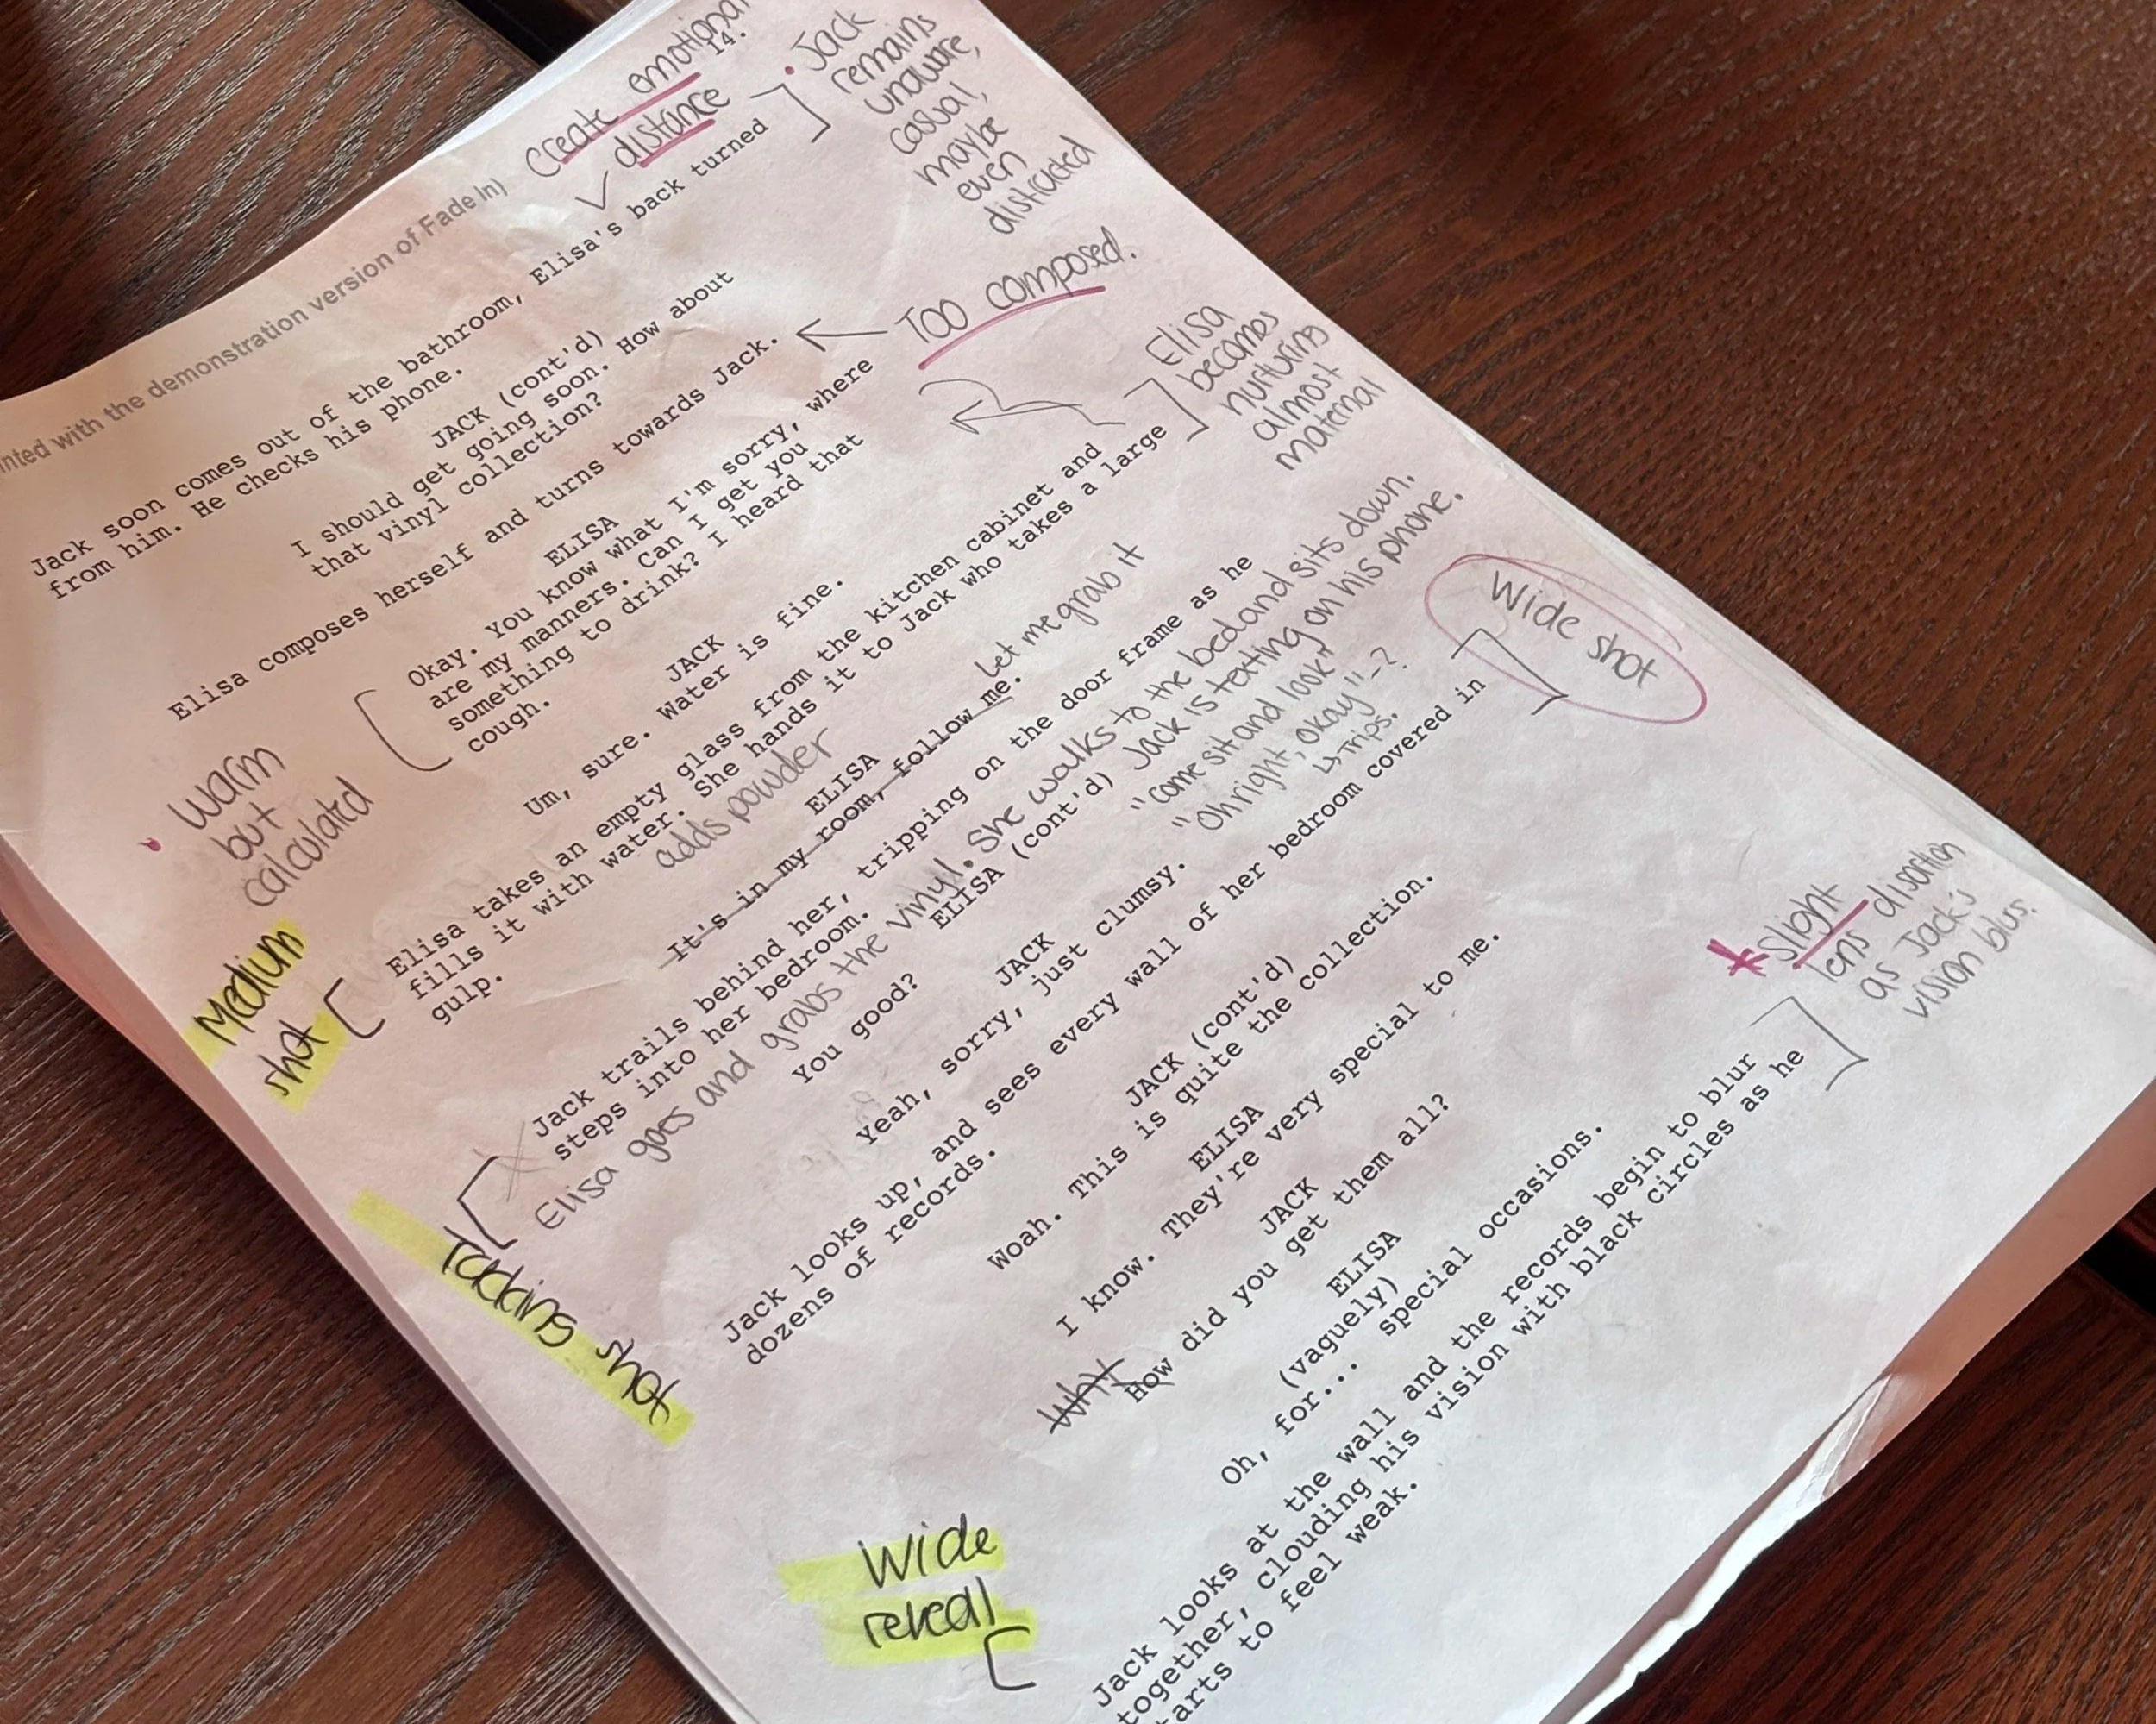 14.
inted with the demonstration version of Fade In)
create emotional
distance
Jack soon comes out of the bathroom, Elisa's back turned
from him. He checks his phone.
. Jack
remains
unaware,
casual,
maybe
even
distracted
JACK (cont'd)
I should get going soon. How about
that vinyl collection?
Elisa composes herself and turns towards Jack.
Too composed.
ELISA
Okay. You know what I'm sorry, where
are my manners. Can I get you
something to drink? I heard that
cough.
warm
but
calculated
Elisa
becomes
nurturing
almost
maternal
JACK
Um, sure. Water is fine.
Elisa takes an empty glass from the kitchen cabinet and
fills it with water. She hands it to Jack who takes a large
gulp.
adds powder
Medium
shot
ELISA
It's in my room, follow me.
Let me grab it
Jack trails behind her, tripping on the door frame as he
steps into her bedroom.
Elisa goes and grabs the vinyl. She walks to the bed and sits down.
Jack is texting on his phone.
"come sit and look"
"Oh right, okay" - ?
↳ Trips.
Tracking shot
ELISA (cont'd)
You good?
JACK
Yeah, sorry, just clumsy.
Jack looks up, and sees every wall of her bedroom covered in
dozens of records.
Wide
shot
JACK (cont'd)
Woah. This is quite the collection.
ELISA
I know. They're very special to me.
JACK
Why How did you get them all?
ELISA
(vaguely)
Oh, for... special occasions.
Jack looks at the wall and the records begin to blur
together, clouding his vision with black circles as he
tarts to feel weak.
* slight
lens disortion
as Jack's
vision blurs.
Wide
reveal